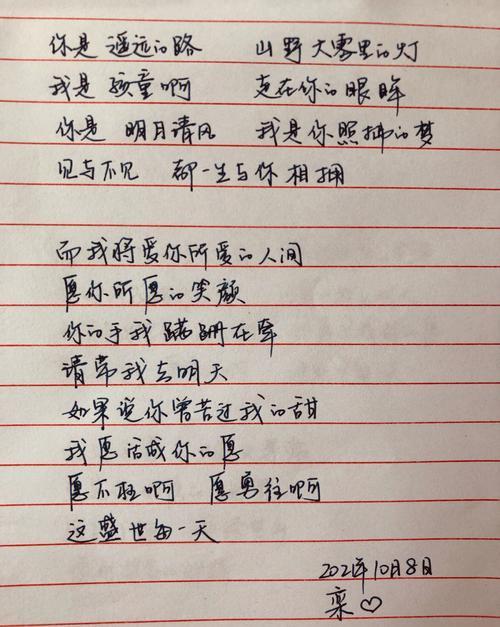 你是 遥远的路 山野大雾里的灯
我是 孩童啊 走在你的眼眸
你是 明月清风 我是你照拂的梦
见与不见 都一生与你相拥
而我将爱你所爱的人间
愿你所愿的笑颜
你的手我蹒跚在牵
请带我去明天
如果说你曾苦过我的甜
我愿活成你的愿
愿不枉啊 愿勇往啊
这盛世每一天
2021年10月8日
栾♡